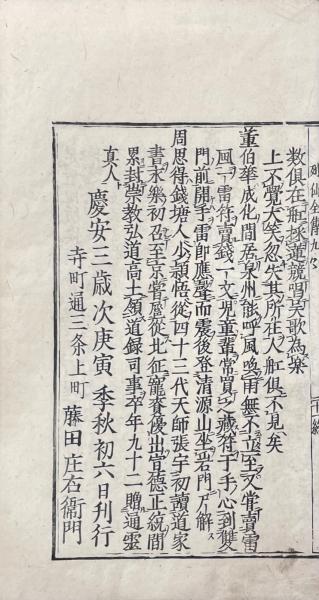 列仙全傳九之
數俱在舡採蓮競唱吳歌為樂
上不覺大笑忽失其所在人舡俱不見矣
董伯華成化間居泉州能呼風喚雨無不立至又嘗賣雷
風一雷符賣錢一文兒童輩常買之藏符于手心到雙
門前開手雷即應聲而震後登清源山坐石門尸解
周思得錢塘人少穎悟從四十三代天師張宇初讀道家
書永樂初召至京嘗扈從北征寵賚優出宣德正統間
累封崇教弘道高士領道録司事卒年九十二贈通靈
真人
慶安三歲次庚寅季秋初六日刊行
寺町通三条上町 藤田庄右衛門